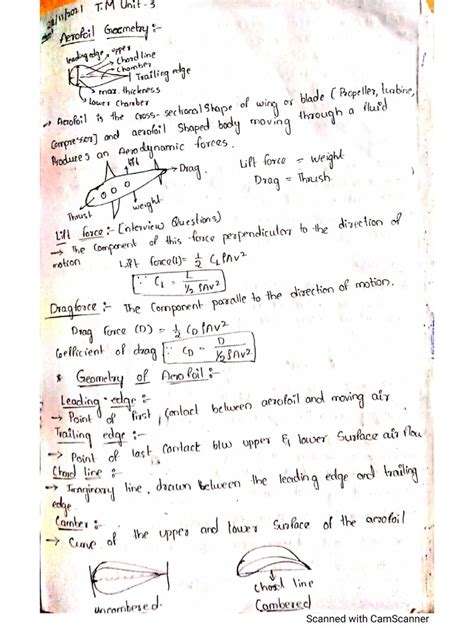 29/11/2021 T.M Unit-3
Aerofoil Geometry :-
leading edge upper
Chord line
Chamber
Trailing edge
max. thickness
Lower Chamber
→ Aerofoil is the cross-sectional shape of wing or blade [Propeller, turbine,
Compressor] and aerofoil shaped body moving through a fluid
Produces an Aerodynamic forces.
Lift
Drag
Thrust
weight
Lift force = weight
Drag = Thrush
Lift force :- (Interview Questions)
→ The Component of this force perpendicular to the direction of
motion Lift force(L) = ½ CL ρAv²
∵ CL = L / ½ ρAv²
Dragforce :- The Component paralle to the direction of motion.
Drag force (D) = ½ CD ρAv²
Coefficient of drag ∵ CD = D / ½ ρAv²
* Geometry of Aerofoil :-
Leading - edge :-
→ Point of first, Contact between aerofoil and moving air
Trailing edge :-
→ Point of last Contact b/w upper & lower Surface air flow
Chord line :-
→ Imaginary line, drawn between the leading edge and trailing
edge
Camber :-
→ Curve of the upper and lower Surface of the aerofoil
uncombered.
chord line
Cambered
Scanned with CamScanner